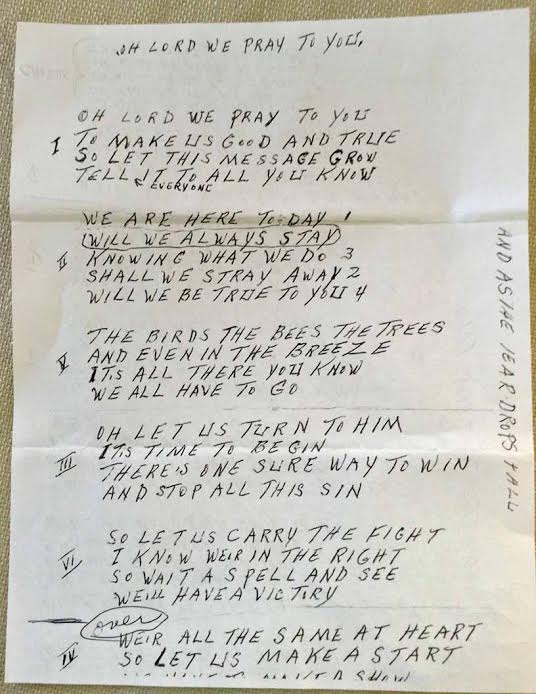 OH LORD WE PRAY TO YOU.
OH LORD WE PRAY TO YOU
I TO MAKE US GOOD AND TRUE
SO LET THIS MESSAGE GROW
TELL IT TO ALL YOU KNOW
EVERYONE
WE ARE HERE TO-DAY 1
(WILL WE ALWAYS STAY)
II KNOWING WHAT WE DO 3
SHALL WE STRAY AWAY 2
WILL WE BE TRUE TO YOU 4
THE BIRDS THE BEES THE TREES
AND EVEN IN THE BREEZE
V ITS ALL THERE YOU KNOW
WE ALL HAVE TO GO
OH LET US TURN TO HIM
ITS TIME TO BEGIN
III THERE'S ONE SURE WAY TO WIN
AND STOP ALL THIS SIN
SO LET US CARRY THE FIGHT
VI I KNOW WEIR IN THE RIGHT
SO WAIT A SPELL AND SEE
WEILL HAVE A VICTIRY
over
WEIR ALL THE SAME AT HEART
IV SO LET US MAKE A START
AND AS THE TEAR DROPS FALL